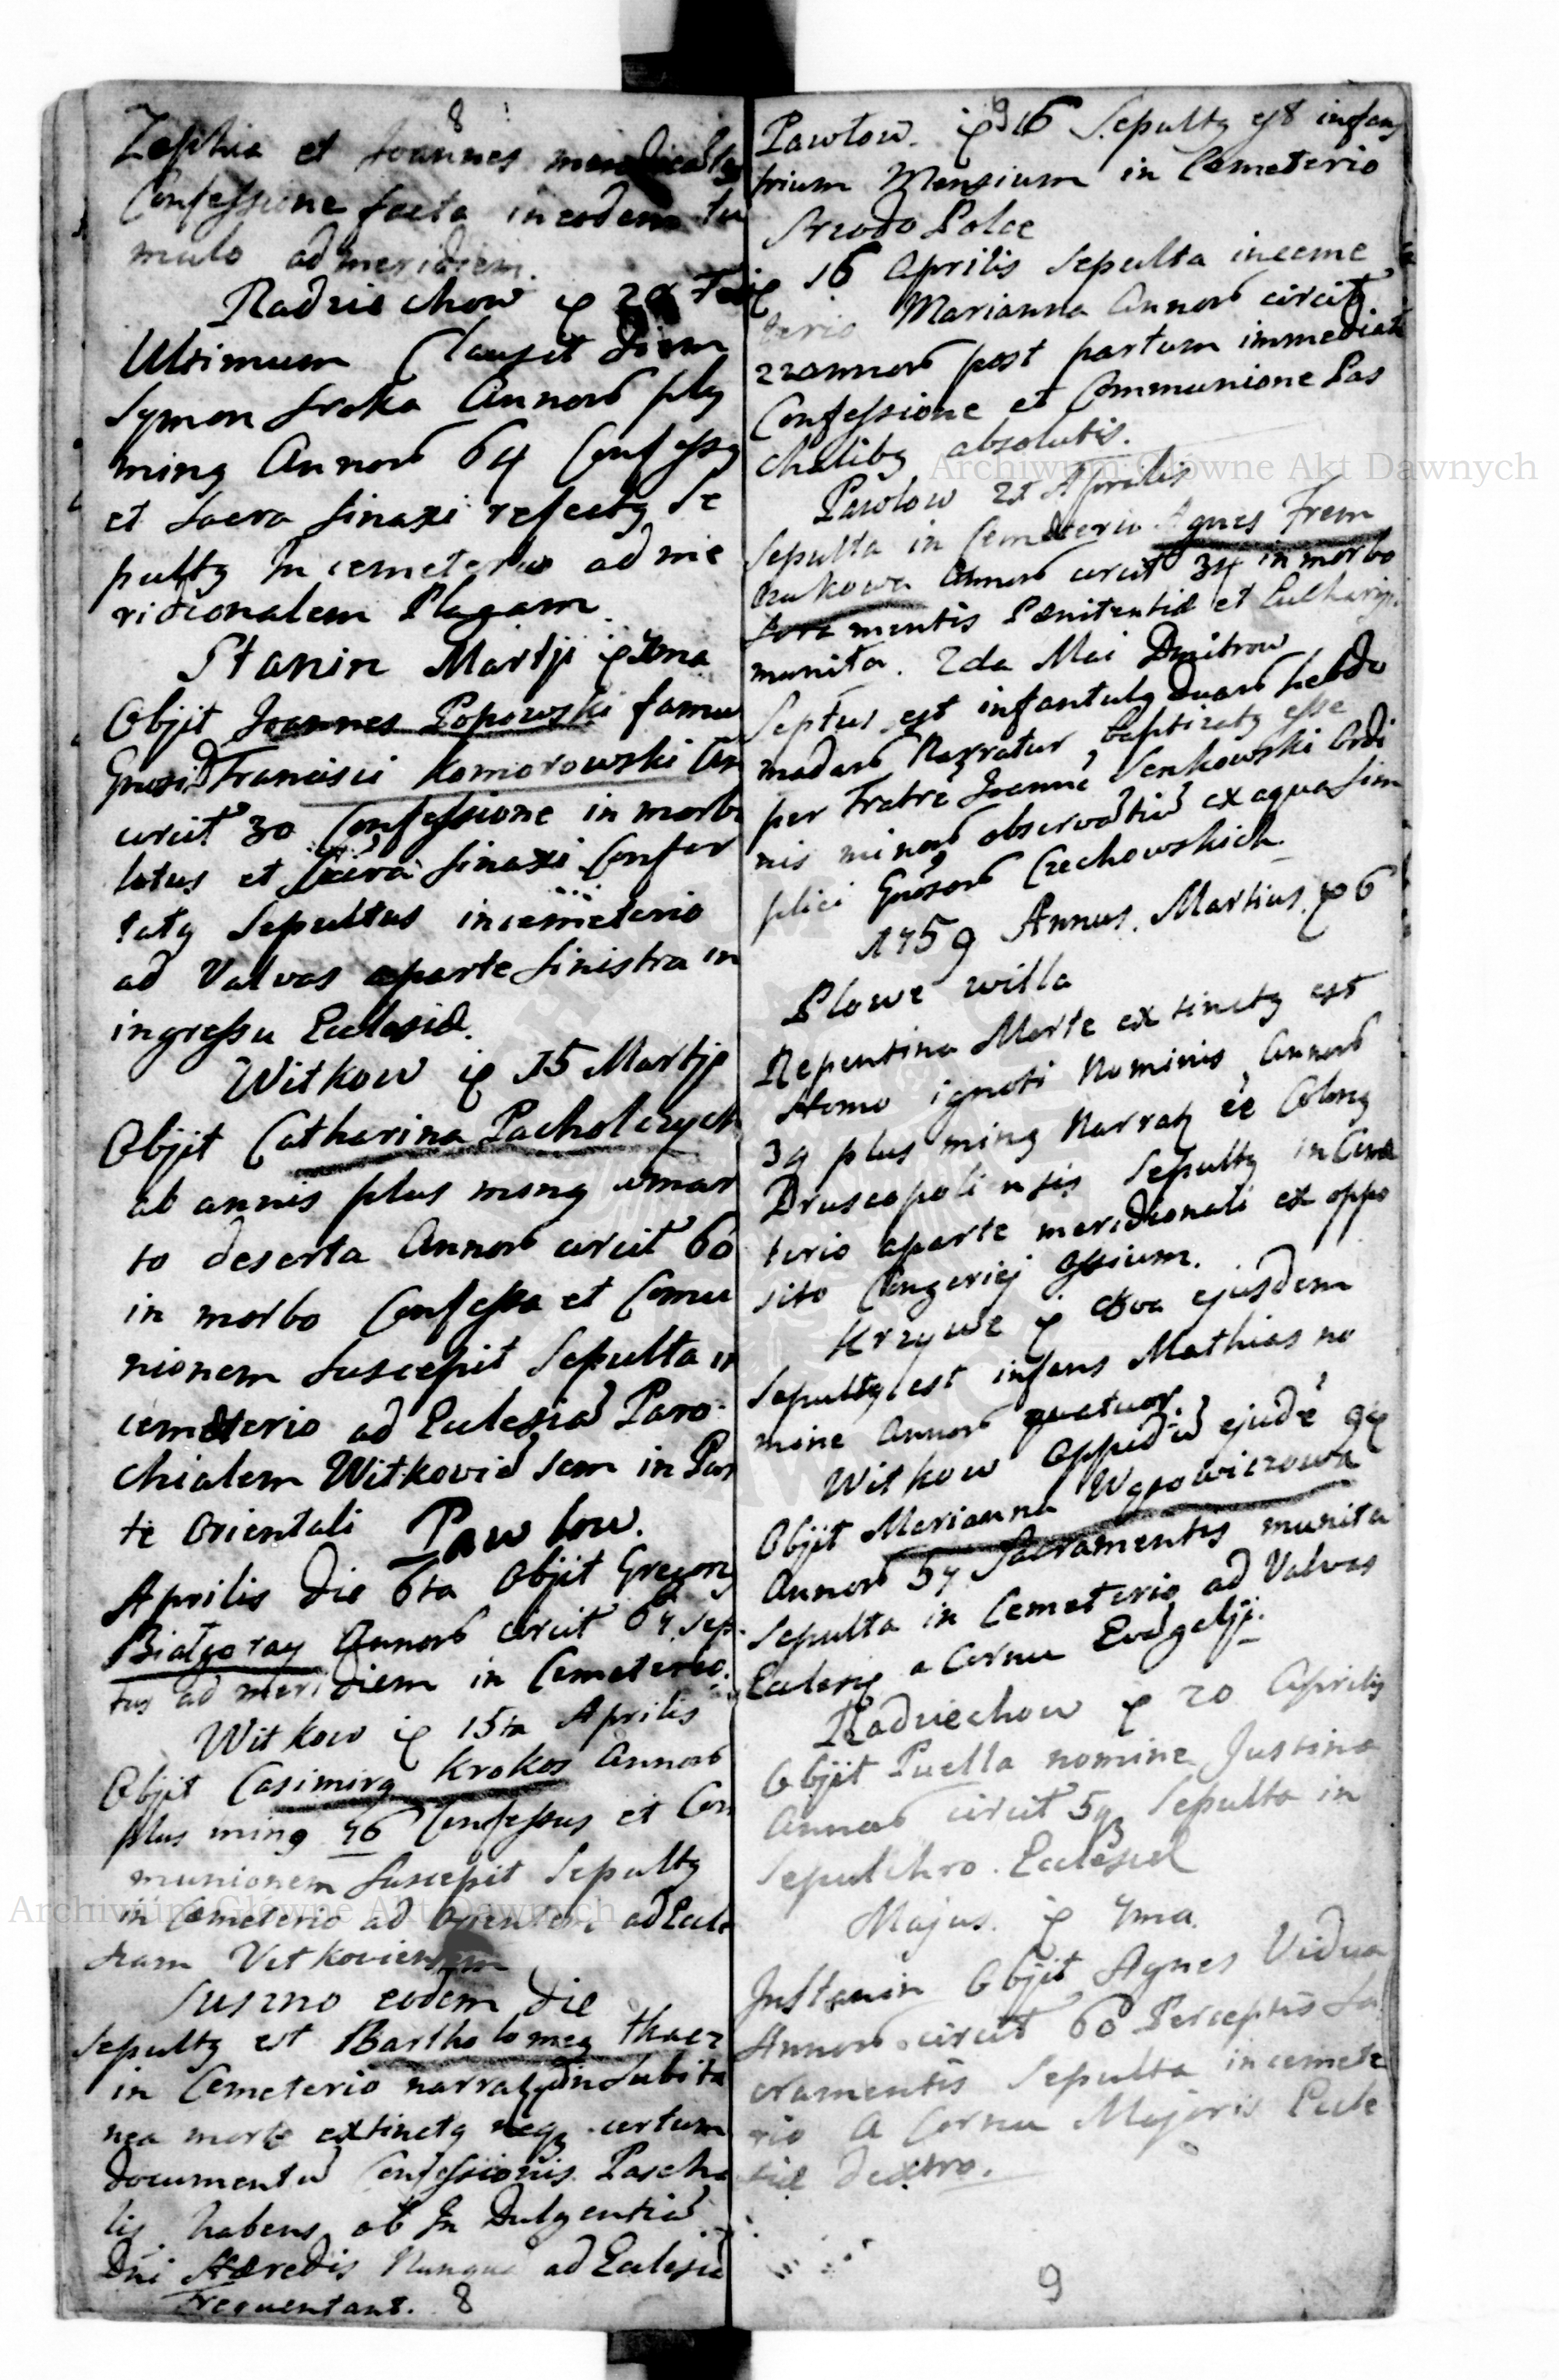 8
Zophia et Joannes mendica
Confessione facta in eodem tu
mulo ad meridiem.
Radziechow
Ultimum Clausit diem
Symon Sroka Annorũ plg
ming Annorũ 64 Confessg
et Sacra Sinaxi refectg Se
pultg in cemeterio ad me
ridionalem Plagam.
Stanin Martji
Objit Joannes Popowski famu
Francisci Komorowski An
circit 30 Confessione in morbo
latus et Sacra Sinaxi Confor
tatg Sepultus in cemeterio
ad Valvas a parte sinistra in
ingressu Ecclesiæ.
Witkow 15 Martji
Objit Catharina Pacholczych
ab annis plus ming a mar
to deserta Annorũ circit 60
in morbo Confessa et Comu
nionem suscepit Sepulta in
cemeterio ad Eclesiã Paro
chialem Witkoviẽ sem in Par
te Orientali Pawlow.
Aprilis Die 6ta Objit Gregorg
Bialgoray Annorũ circit 64 Sep.
tus ad meridiem in Cemeterio.
Witkow 15ta Aprilis
Objit Casimirg Krokos Annorũ
plus ming 46 Confessus et Com
munionem suscepit Sepultg
in Cemeterio ad Orientem ad Ecle
siam Vitkoviensem
Suszno eodem die
Sepultg est Bartholomeg tkacz
in Cemeterio subita
nea morte extinctg neqz certum
documentũ Confessionis Pascha
lis habens ob In Dulgentiã
Dni Hæredis Nunquã ad Eclesiã
Frequentant. 8
9
Pawlow. 16 Sepultg est infans
trium Mensium in Cemeterio
Srzodo Polce
16 Aprilis Sepulta in ceme
terio Marianna Annorũ circitg
22 annorũ post partum immediate
Confessione et Communione Pas
chalibg absolutis.
Pawlow 21 Aprilis
Sepulta in Cemeterio Agnes Frem
czukowa Annorũ circit 34 in morbo
Sacramentis Pænitentiæ et Eucharis.
munita. 2da Mai Dmitrow
Septus est infantulg duarũ hebdo
madarũ Narratur baptizatg esse
per Fratrẽ Joannẽ Senkowski Ordi
nis minorũ observãtiũ ex aqua sim
plici Gnosorũ Czechowskich.
1759 Annus. Martius. 6
Plowe willa
Repentina Morte extinctg est
Homo ignoti Nominis Annorũ
39 plus ming Narratz eẽ Colong
Druscopoliensis Sepultg in Ceme
terio a parte meridionali ex oppo
sito Congeriej ossium.
Krzywe 8va ejusdem
Sepultg est infans Mathias no
mine Annorũ quatuor.
Witkow Oppidũ ejudẽ
Objit Marianna Wąsowiczowa
Annorũ 54 Sacramentis munita
Sepulta in Cemeterio ad Valvas
Eclesię a Cornu Evãgelji.
Radziechow 20 Aprilis
Objit Puella nomine Justina
Annorũ circit Sepulta in
Sepulchro Eclesiæ
Majus. 4ma
In Stanin Objit Agnes Vidua
Annorũ circit 60 Perceptis Sa
cramentis Sepulta in cemete
rio A Cornu Majoris Ecle
siæ dextro.
9
Archiwum Główne Akt Dawnych
Archiwum Główne Akt Dawnych